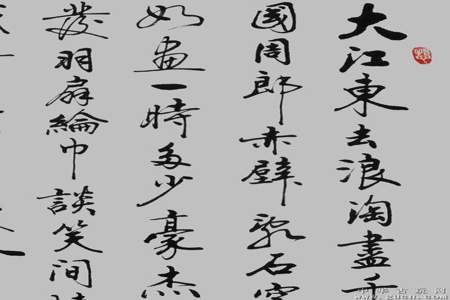 大江東去浪淘盡千
國周郎赤壁亂石穿
如畫一時多少豪杰
發羽扇綸巾談笑間
www.gucn.com